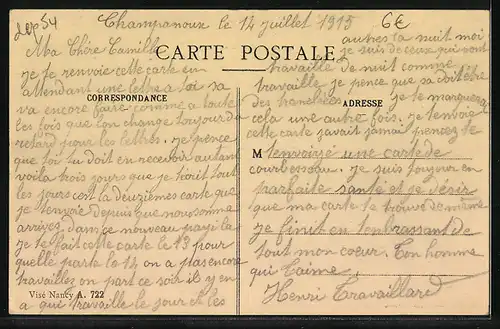 dep 54
Champenoux le 14 juillet 1915
6€
Ma Chère Camille
CARTE POSTALE
je te renvoie cette carte en
attendant une lettre a toi sa
CORRESPONDANCE
va encore faire comme a toute
les fois que l'on change toujour du
retard pour les lettres. je pence
que toi tu doit en recevoir autant
voila trois jours que je t'écrit tout
les jours c'est la deuxièmes carte que
je t'envoie Depuis que nous somme
arrivez dans ce nouveau payi la
je te fait cette carte le 13 pour
quelle parte le 14 on a pas encore
travaillez on part ce soir il y en
a que travaille le jour et les
Visé Nancy A. 722
autres la nuit moi
je suis de ceux qui vont
travaille de nuit comme
travaille je pence que sa doit être
des tranchées je te marquerai
ADRESSE
cela une autre fois. Je t'envoie
cette carte j'avait jamai pencez te
M
t'envoiyé une carte de
courbesseau. je suis toujour en
parfaite santé et se désir
que ma carte te trouve de même
je finit en t'embrassant de
tout mon coeur. Ton homme
qui t'aime
Henri Travaillard